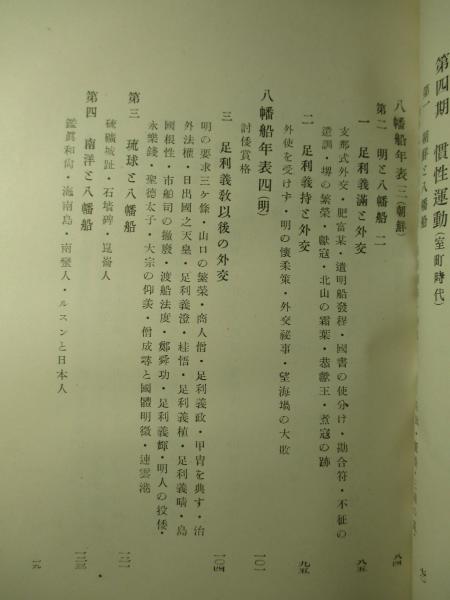 第四期 慣性運動(室町時代)
第一 朝鮮と八幡船
八幡船年表三(朝鮮) 八四
第二 明と八幡船 二
一 足利義滿と外交 八五
支那式外交・肥富某・遣明船發程・國書の使分け・勘合符・不征の
遺訓・堺の繁榮・獻寇・北山の霜葉・恭獻王・煮寇の跡
二 足利義持と外交 九五
外使を受けず・明の懷柔策・外交祕事・望海堝の大敗
八幡船年表四(明) 一〇一
討倭賞格
三 足利義敎以後の外交 一〇四
明の要求三ケ條・山口の繁榮・商人僧・足利義政・甲冑を典す・治
外法權・日出國之天皇・足利義澄・桂悟・足利義植・足利義晴・島
國根性・市舶司の撤廢・渡船法度・鄭舜功・足利義輝・明人の投倭・
永樂錢・聖德太子・大宗の仰羨・僧成尋と國體明徵・連雲港
第三 琉球と八幡船 一二一
硫礦城趾・石墻碑・崑崙人
第四 南洋と八幡船
鑑眞和尙・海南島・南蠻人・ルスンと日本人